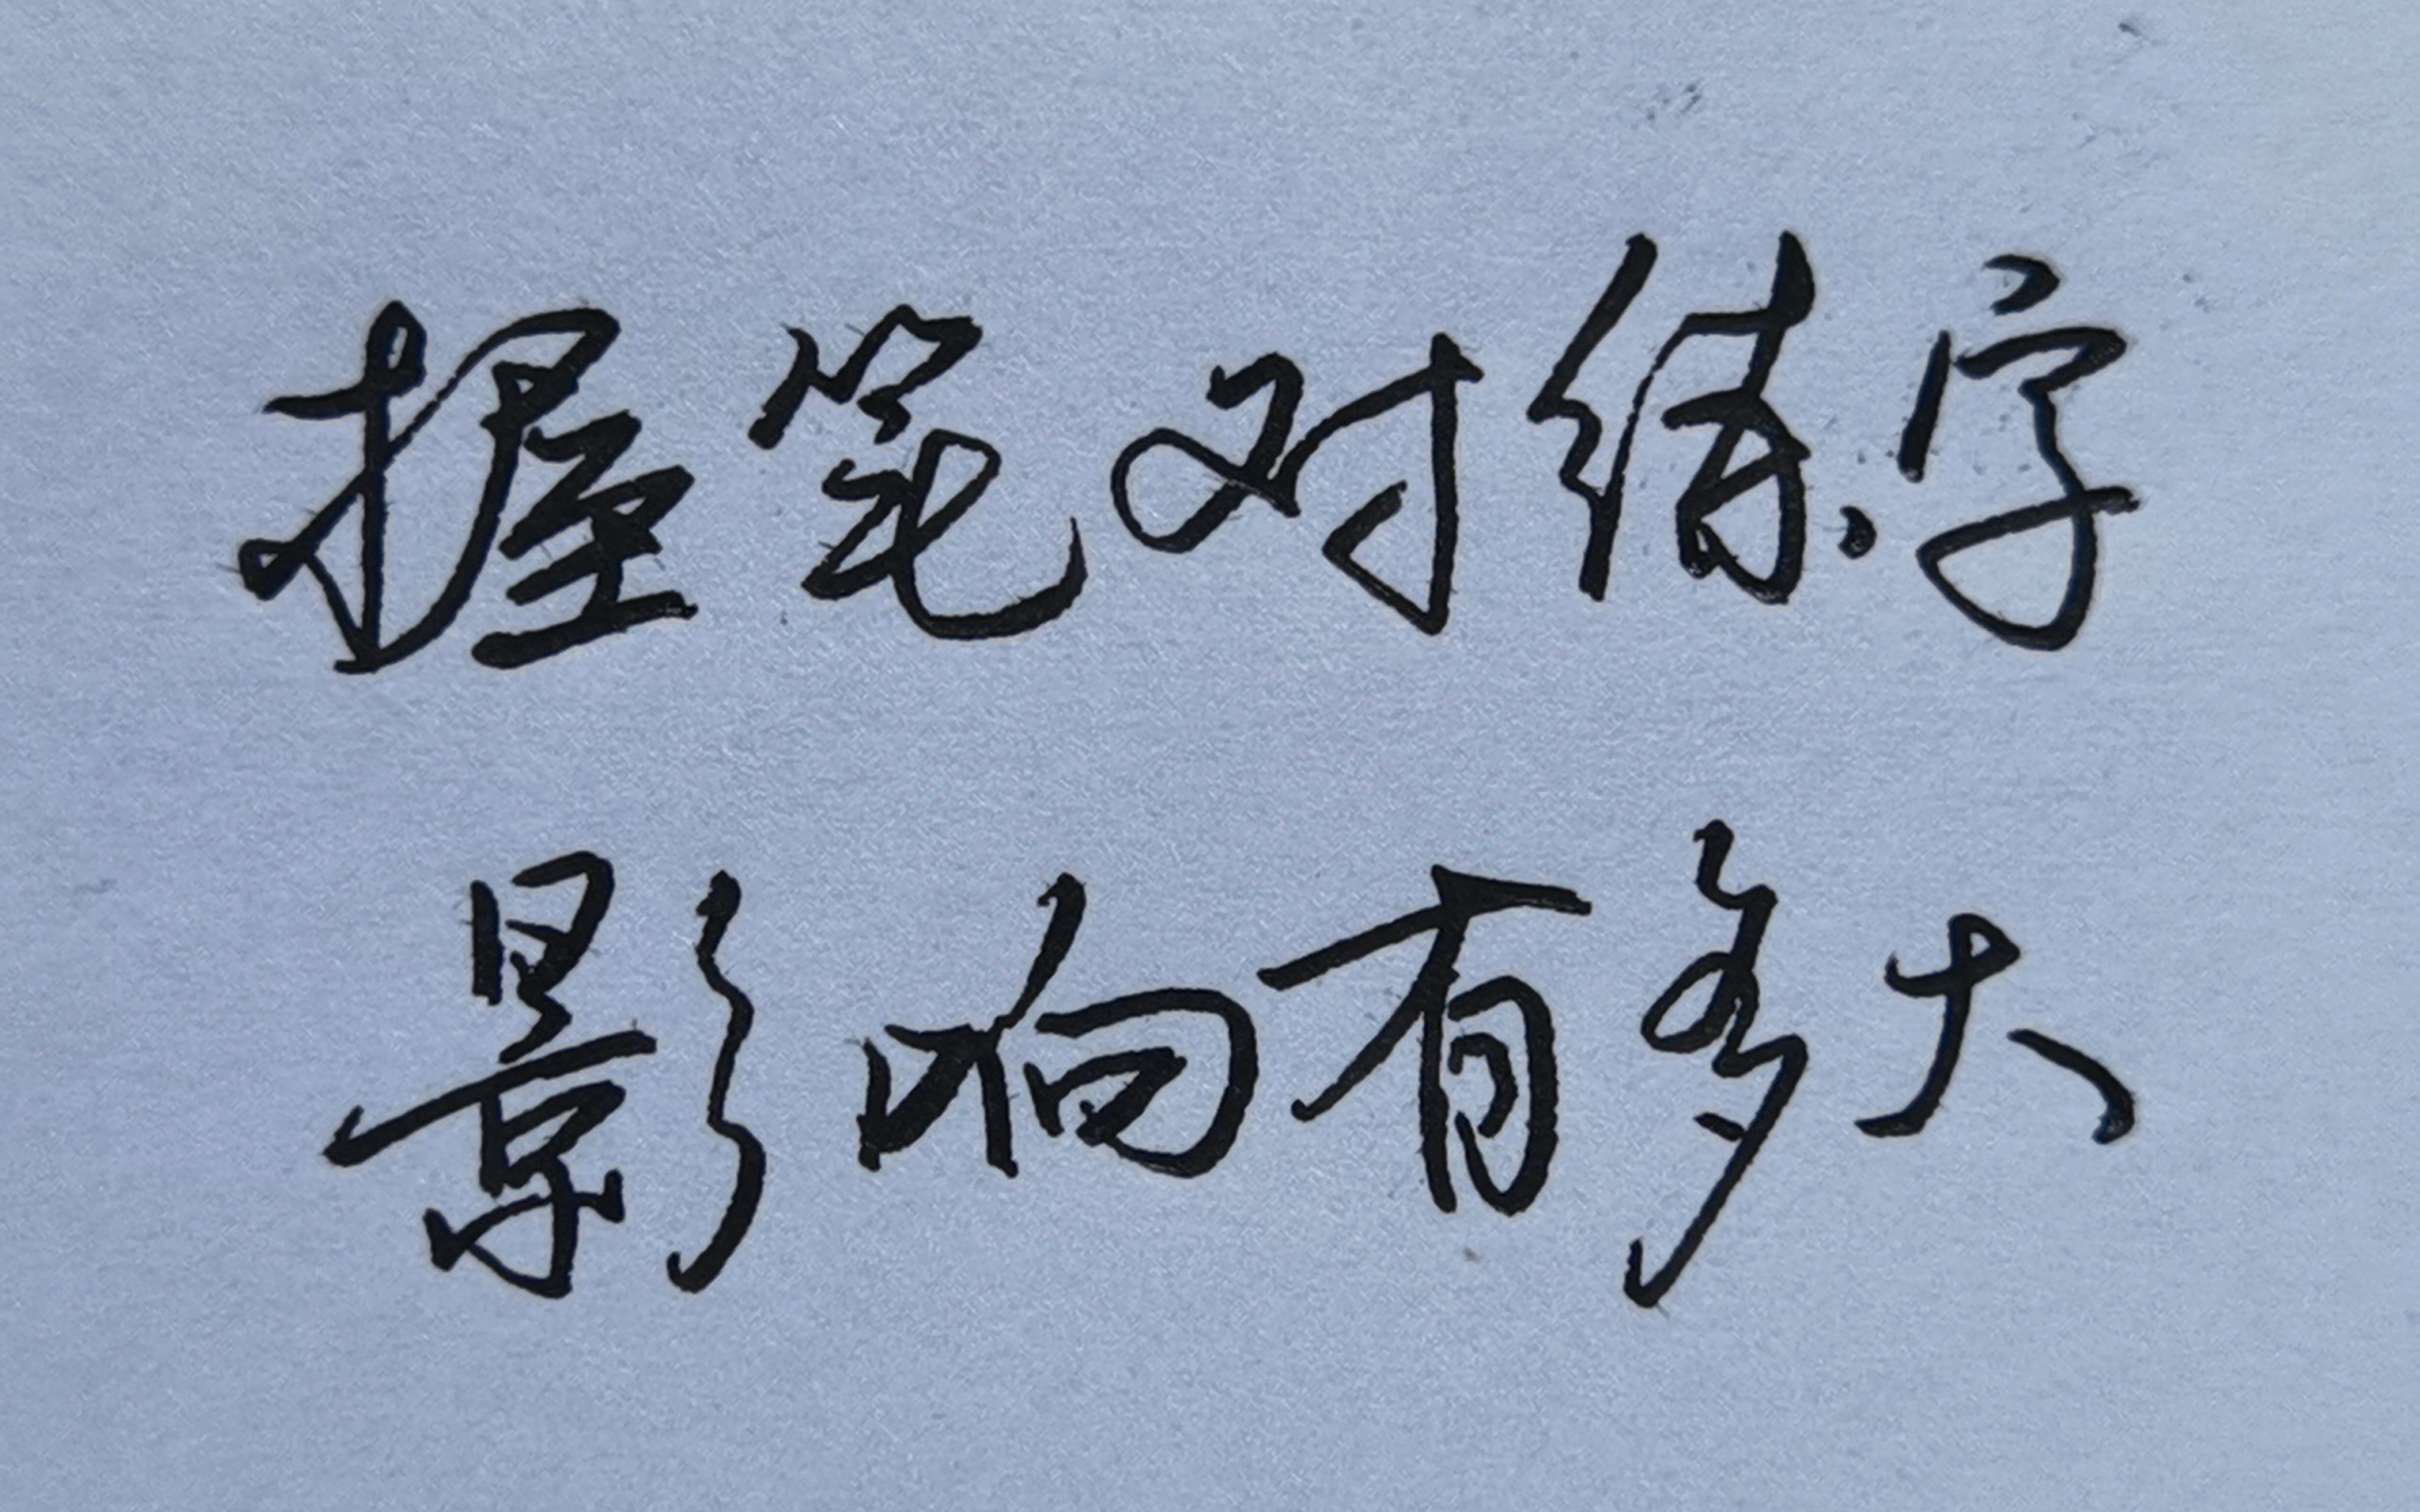 握笔对练字
影响有多大